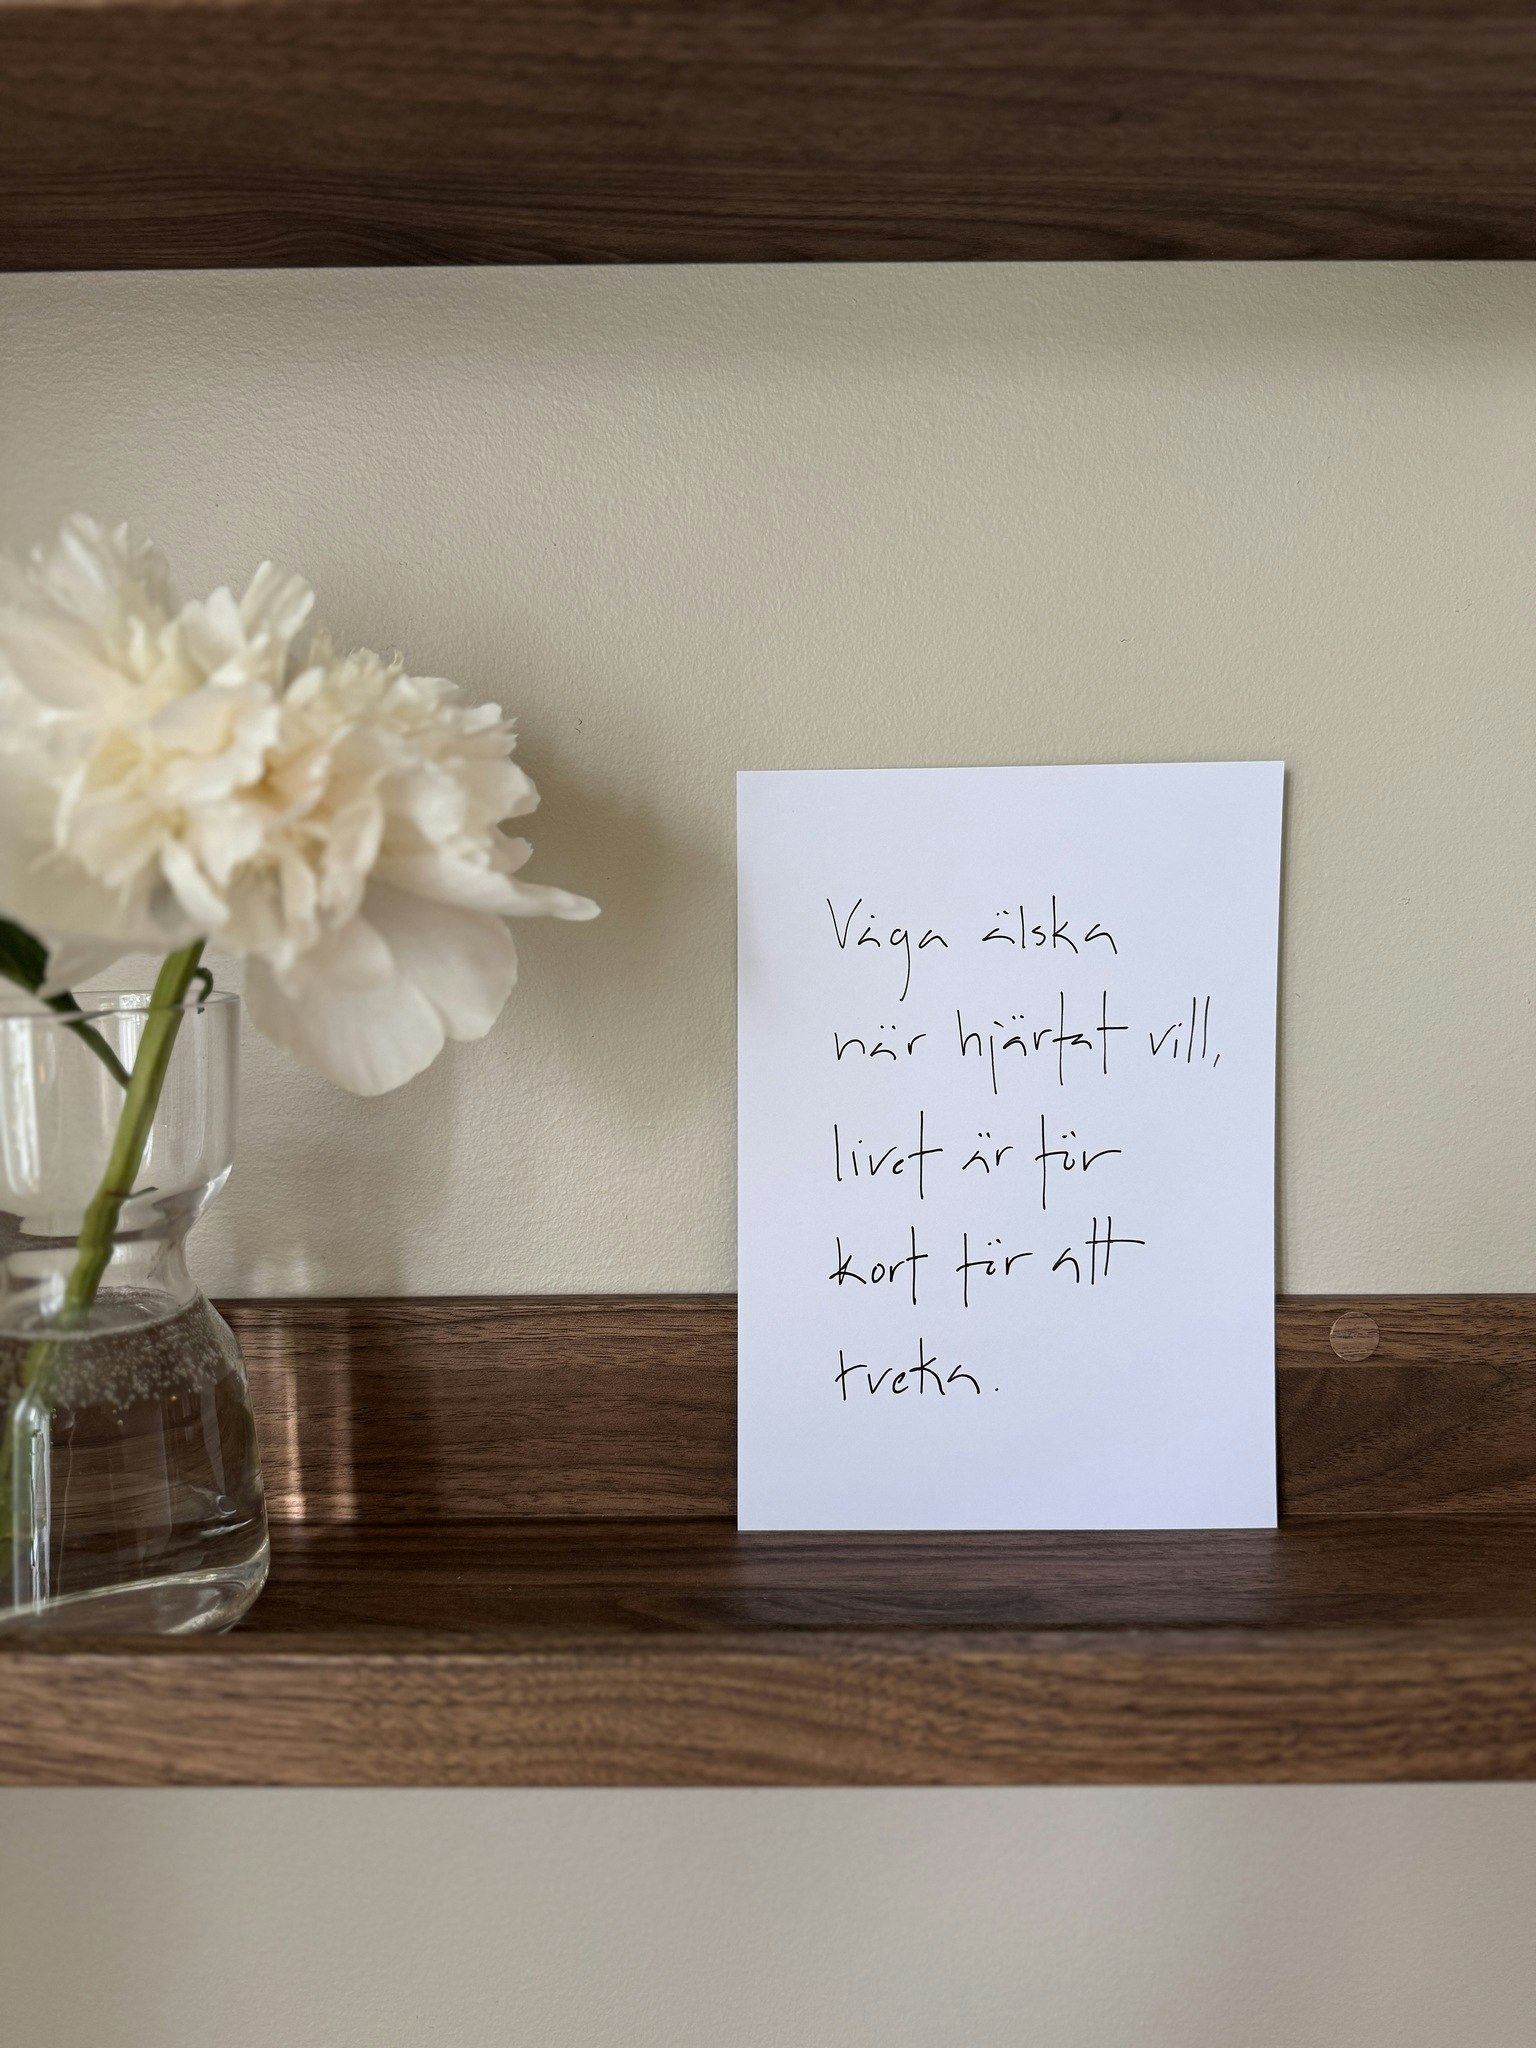 Våga älska
när hjärtat vill,
livet är för
kort för att
tveka.